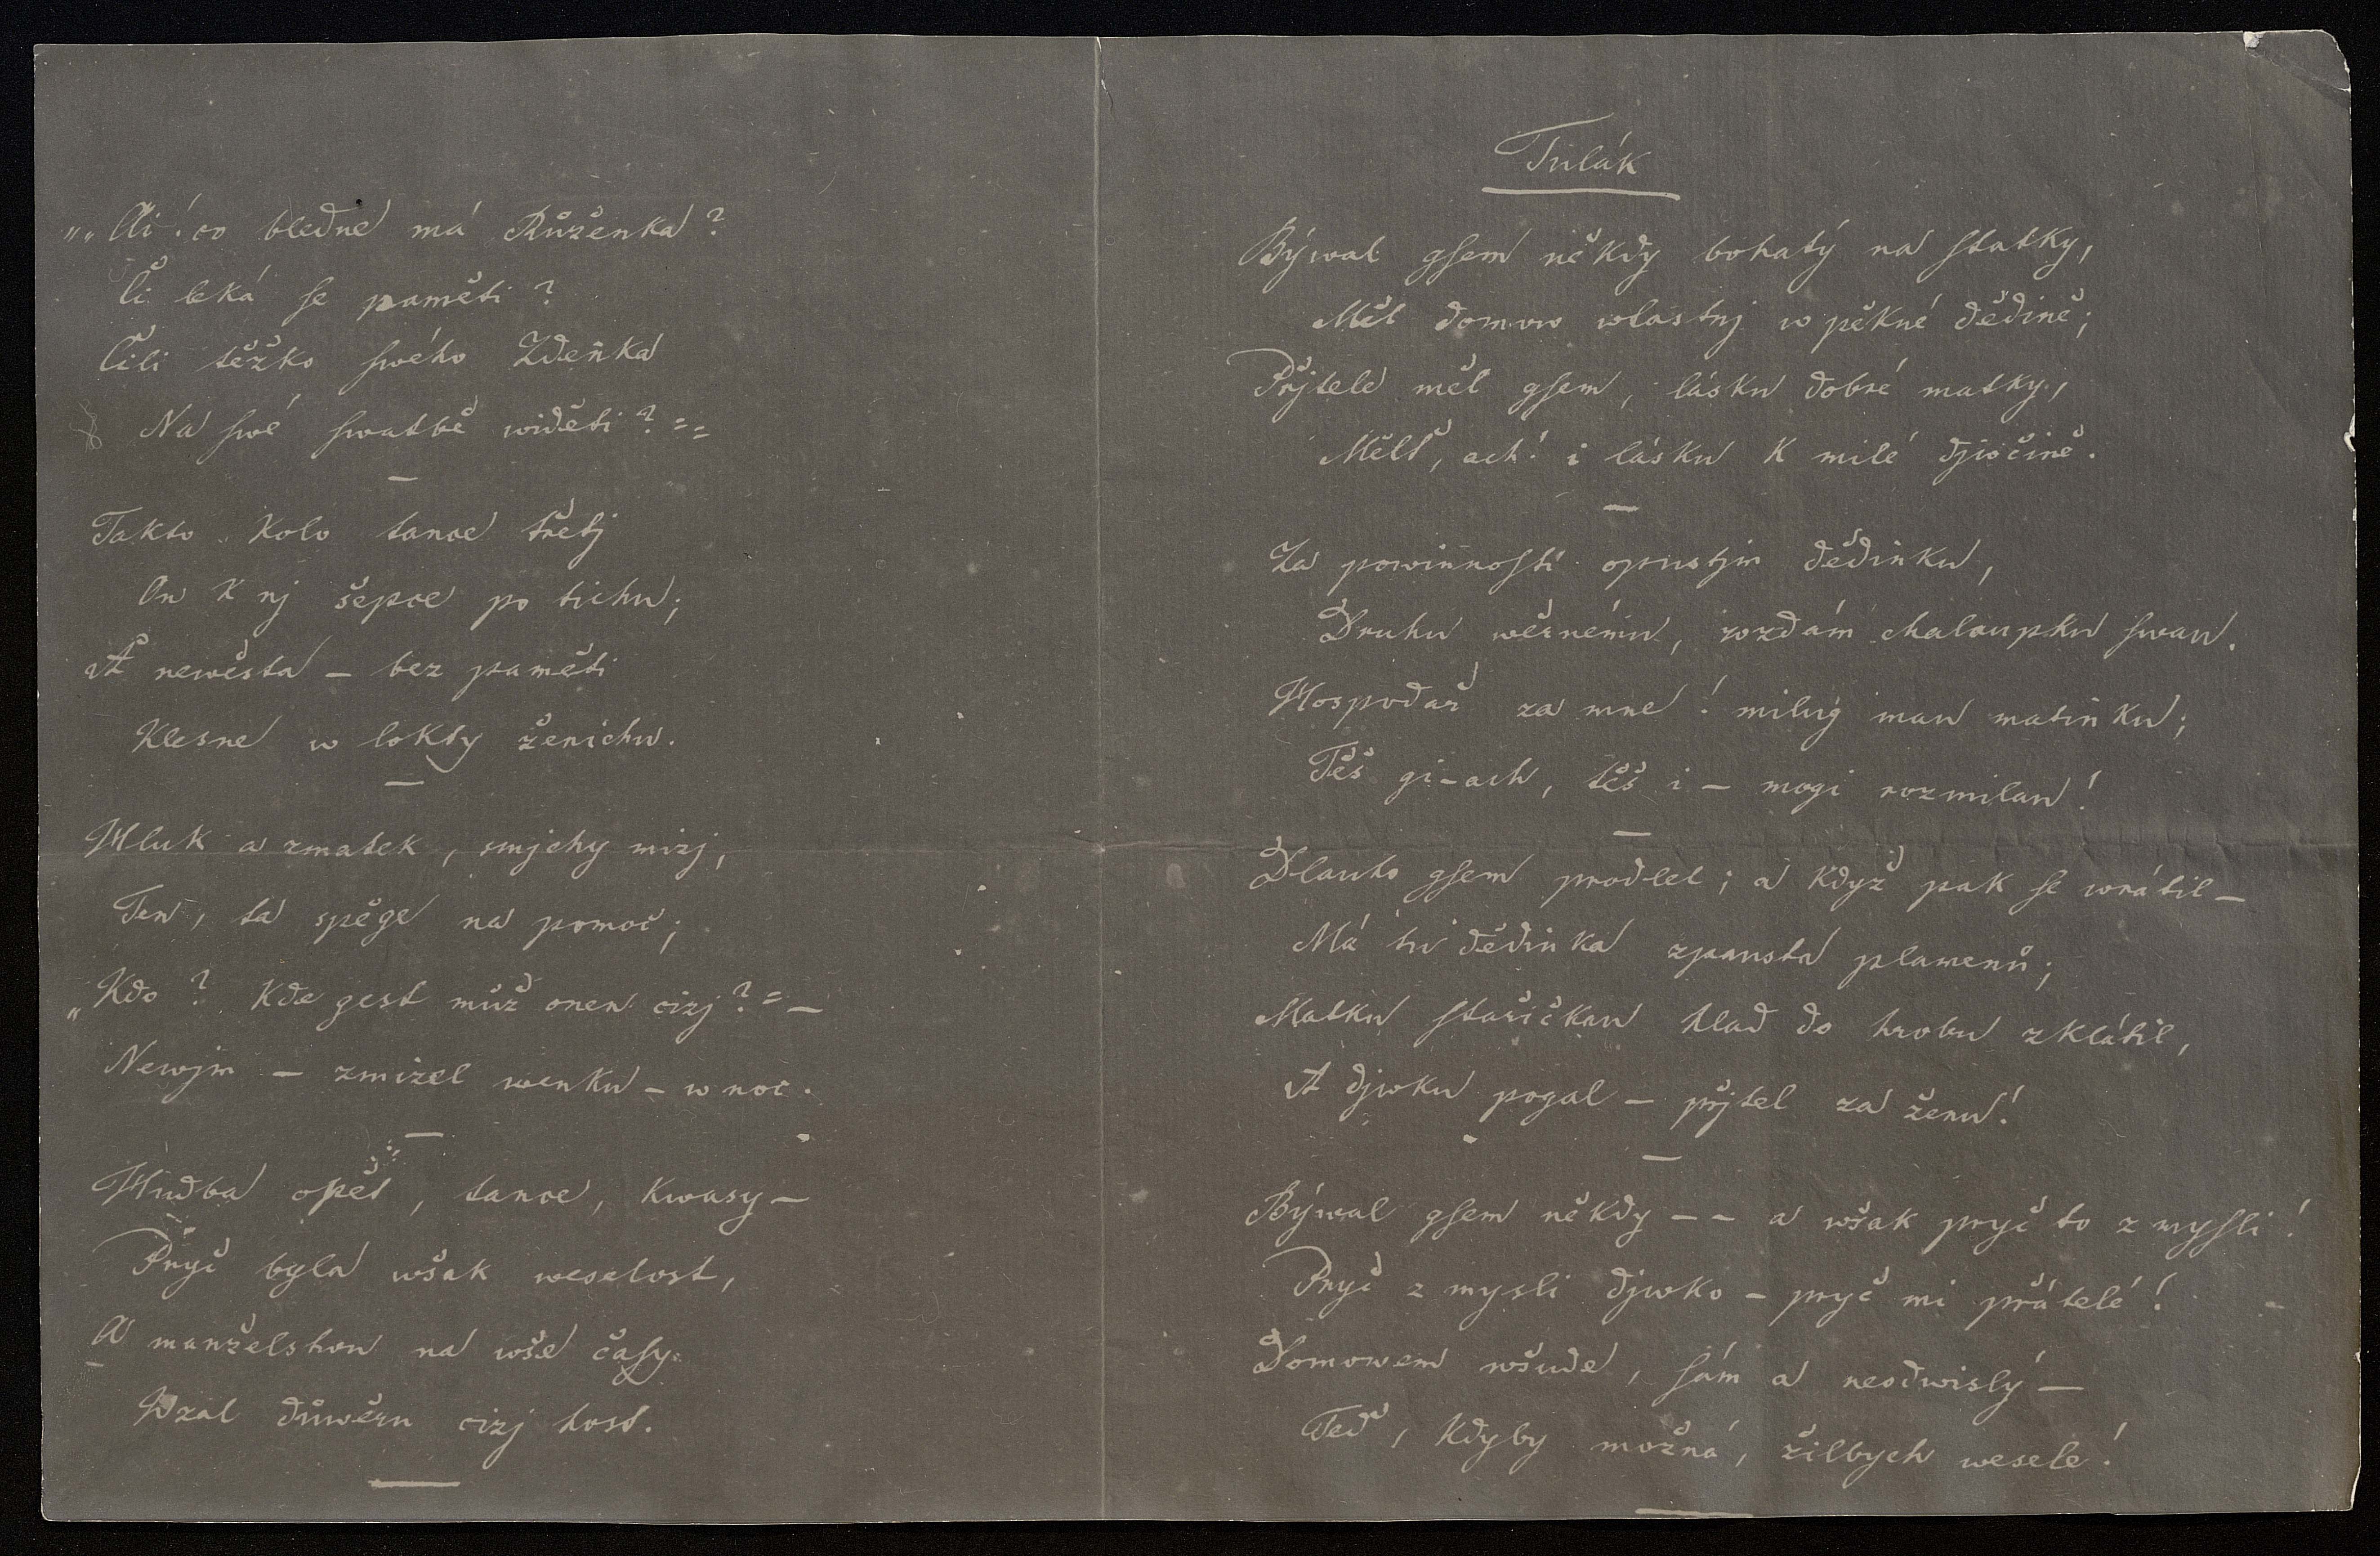 „„Ai! co bledne má Růženka?
Či leká se paměti?
Čili těžko swého Zdeňka
Na swé swatbě widěti?"" 
—
Takto kolo tance třetj
On k nj šepce po tichu;
A newěsta — bez paměti
Klesne w lokty ženichu.
—
Hluk a zmatek, smjchy mizj,
Ten, ta spěge na pomoc;
„Kdo? Kde gest muž onen cizj?" —
Newjm — zmizel wenku — w noc.
—
Hudba opět, tance, kwasy —
Pryč byla wšak weselost,
A manželstwu na wše časy
Wzal důwěru cizj host.
—
Tulák
Býwal gsem někdy bohatý na statky,
Měl domow wlastnj w pěkné dědině;
Přjtele měl gsem, lásku dobré matky,
Mělť, ach! i lásku k milé djwčině.
—
Za powinnostj opustjm dědinku,
Druhu wěrnému, wzdám chalaupku swau.
Hospodař za mne! milug mau matinku;
Těš gi — ach, těš i — mogi rozmilau!
—
Dlauho gsem prodlel; a když pak se wrátil —
Má tu dědinka zpausta plamenů;
Matku stařičkau hlad do hrobu zklátil,
A djwku pogal — přjtel za ženu!
—
Býwal gsem někdy — — a wšak pryč to z mysli!
Pryč z mysli djwko — pryč mi přátelé!
Domowem wšude, sám a neodwislý —
Teď, kdyby možná, žilbych wesele!
—